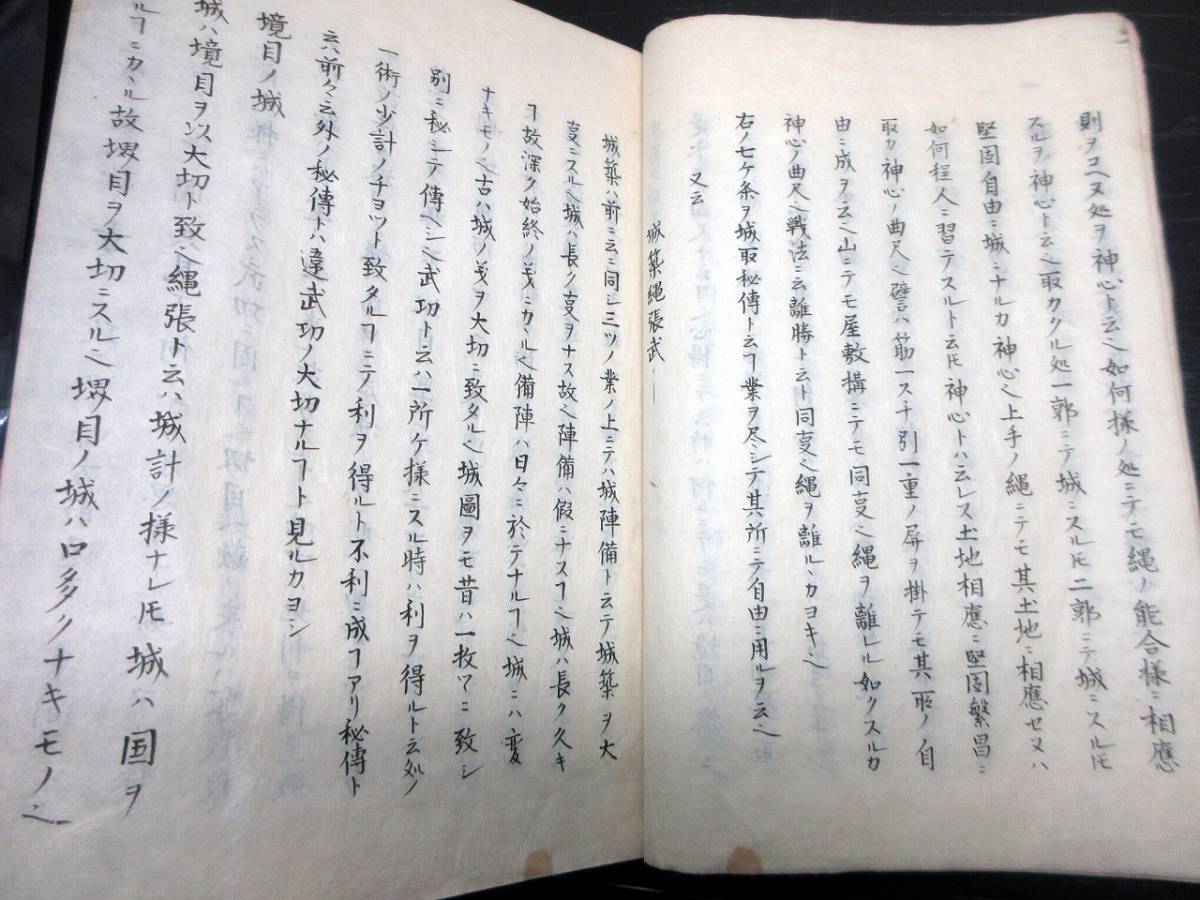 則ヲコヘヌ処ヲ神心ト云也如何様ノ処ニテモ縄ノ能合様ニ相應
スルヲ神心ト云也取カクル処一郭ニテ城ニスルモ二郭ニテ城ニスルモ
堅固自由ニ城ニナルカ神心也上手ノ縄ニテモ其土地ニ相應セヌハ
如何程人ニ習テスルト云𪜈神心トハ云レス土地相應ニ堅固繁昌ニ
取カ神心ノ曲尺也譬ハ筋一スチ引一重ノ屏ヲ掛テモ其取ノ自
由ニ成ヲ云也山ニテモ屋敷構ニテモ同叓也縄ヲ離レル如クスルカ
神心ノ曲尺也戦法ニ云離勝ト云ト同叓也縄ヲ離ルヽカヨキ也
右ノ七ケ条ヲ城取秘傳ト云ヿ業ヲ尽シテ其所ニテ自由ニ用ルヲ云也
又云
城築縄張武
城築ハ前ニ云ニ同シ三ツノ業ノ上ニテハ城陣備ト云テ城築ヲ大
叓ニスル也城ハ長ク叓ヲナス故也陣備ハ假ニナスヿ也城ハ長ク久キ
ヿ故深ク始終ノ㦮ニカヽル也備陣ハ日々ニ於テナルヿ也城ニハ変
ナキモノ也古ハ城ノ㦮ヲ大切ニ致タル也城圖ヲモ昔ハ一枚ツヽニ致シ
別ニ秘シテ傳ヘシ也武功ト云ハ一所ケ様ニスル時ハ利ヲ得ルト云処ノ
一術ノ少計ノチヨツト致タルヿニテ利ヲ得ルト不利ニ成ヿアリ秘傳ト
云ハ前々云外ノ秘傳トハ違武功ノ大切ナルヿト見ルカヨシ
境目ノ城
城ハ境目ヲ以大切ト致也縄張ト云ハ城計ノ様ナレ𪜈城ハ国ヲ
ルヿニカヽル故堺目ヲ大切ニスル也堺目ノ城ハ口多クナキモノ也